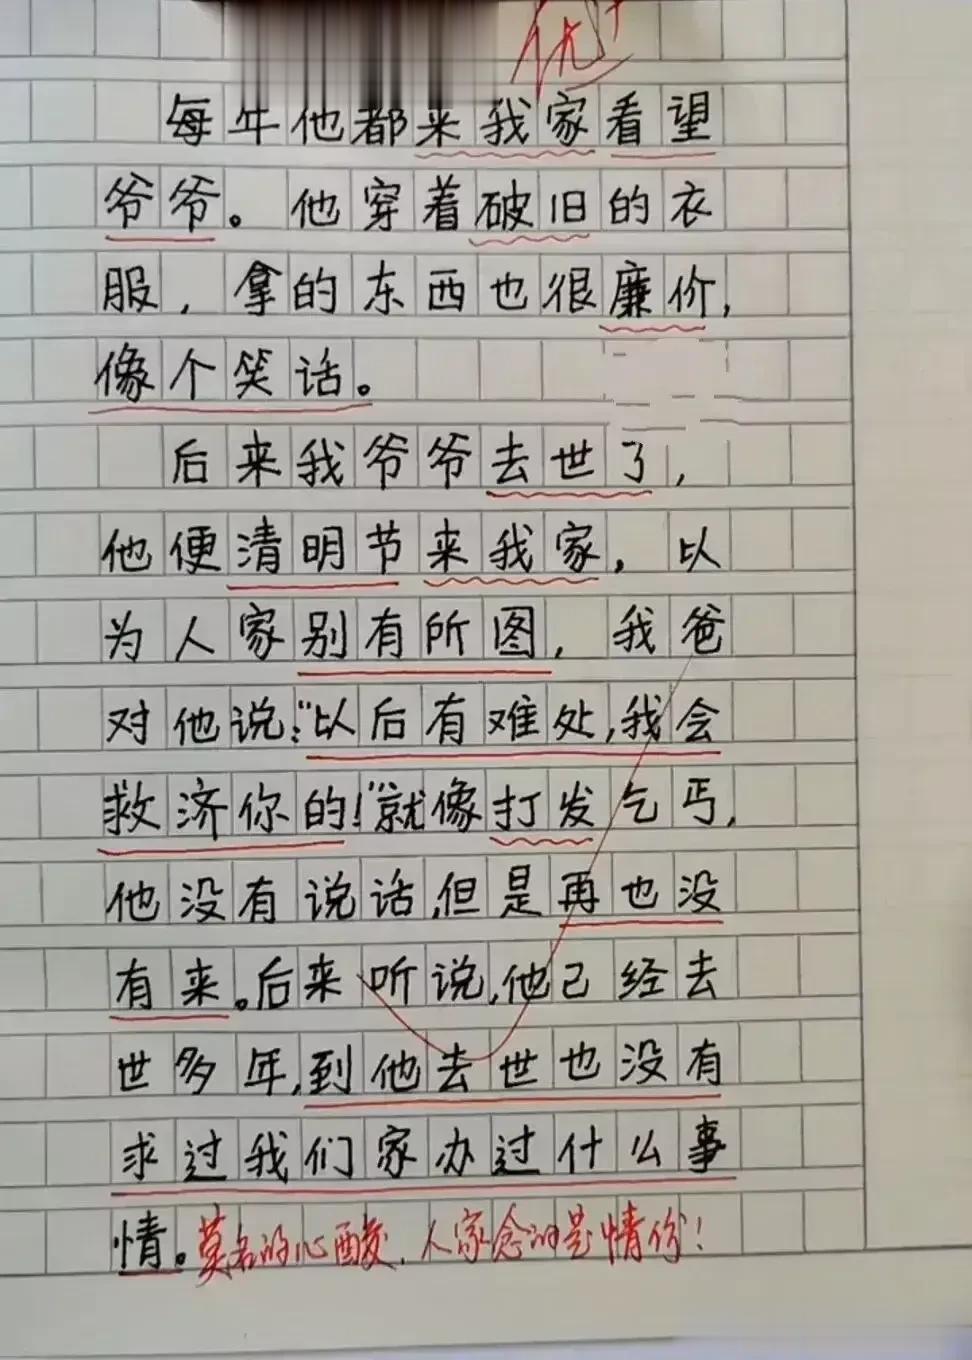 优+
每年他都来我家看望
爷爷。他穿着破旧的衣
服，拿的东西也很廉价，
像个笑话。
后来我爷爷去世了，
他便清明节来我家，以
为人家别有所图，我爸
对他说：“以后有难处，我会
救济你的！”就像打发乞丐，
他没有说话，但是再也没
有来。后来听说，他已经去
世多年，到他去世也没有
求过我们家办过什么事
情。莫名的心酸，人家念的是情份！